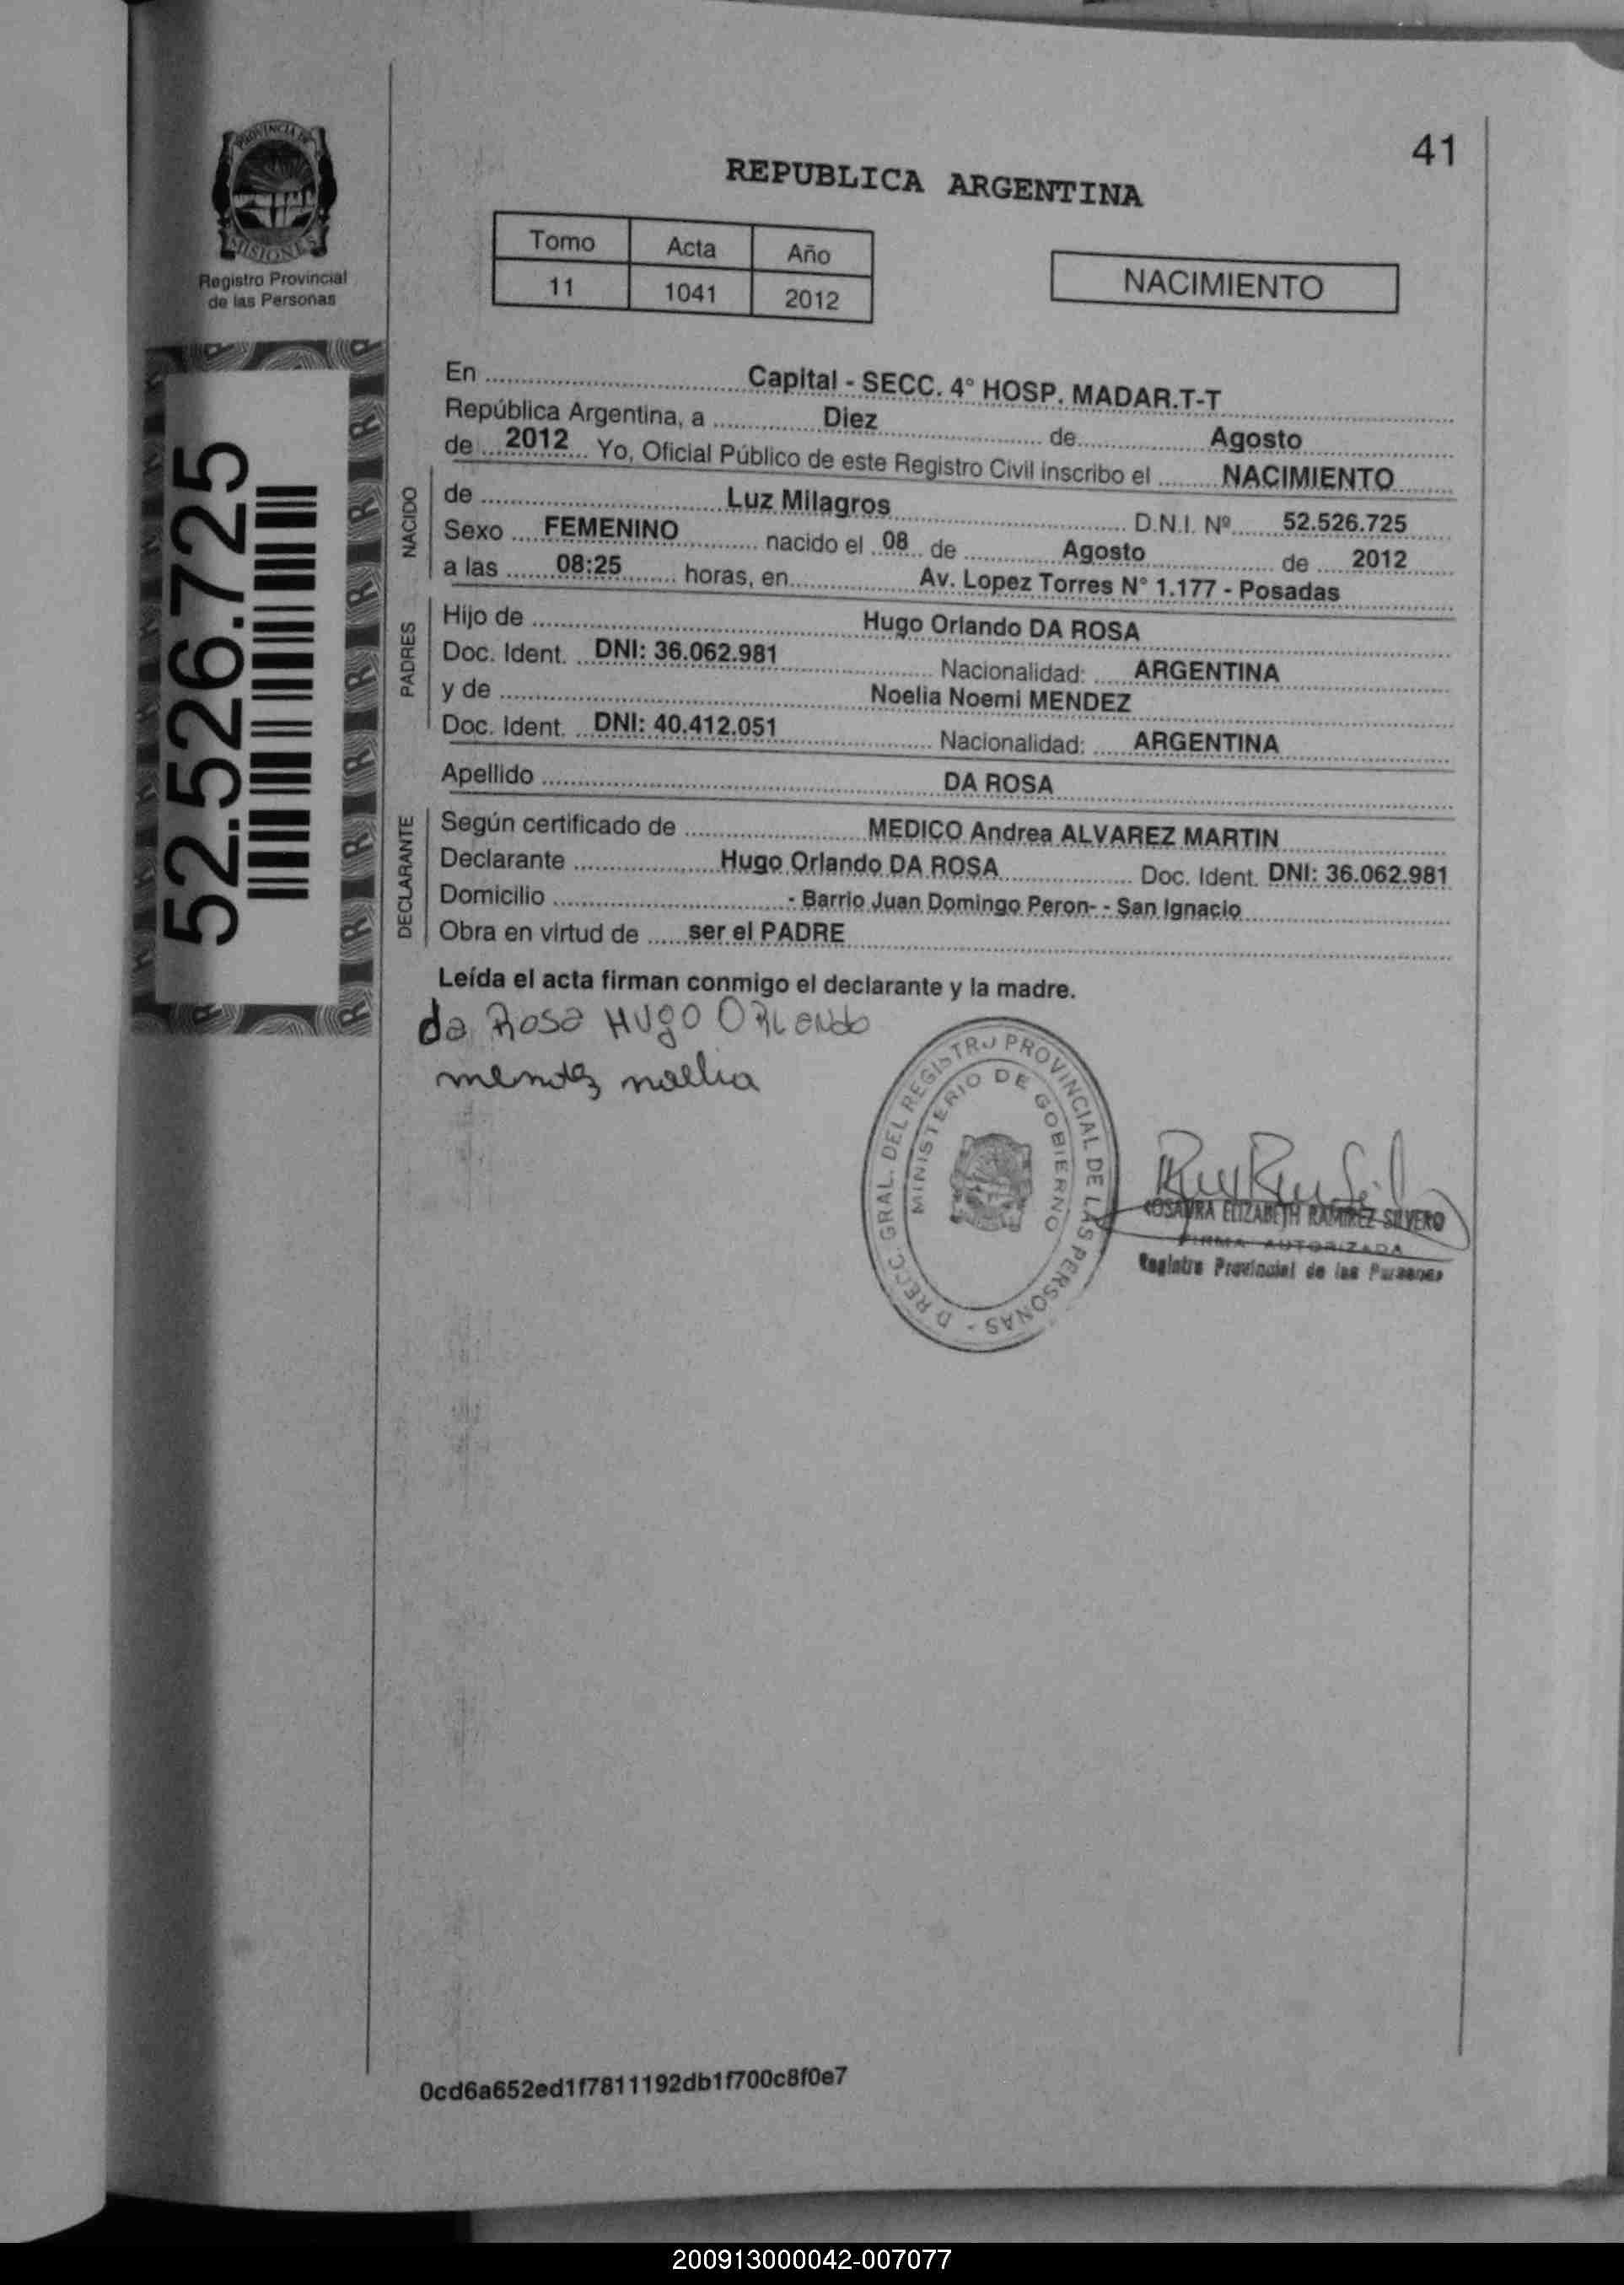 41
PROVINCIA DE
MISIONES
Registro Provincial
de las Personas
REPUBLICA ARGENTINA
Tomo Acta Año
11 1041 2012
NACIMIENTO
52.526.725
En Capital - SECC. 4° HOSP. MADAR.T-T
República Argentina, a Diez de Agosto
de 2012 Yo, Oficial Público de este Registro Civil inscribo el NACIMIENTO
NACIDO
de Luz Milagros D.N.I. Nº 52.526.725
Sexo FEMENINO nacido el 08 de Agosto de 2012
a las 08:25 horas, en Av. Lopez Torres N° 1.177 - Posadas
PADRES
Hijo de Hugo Orlando DA ROSA
Doc. Ident. DNI: 36.062.981 Nacionalidad: ARGENTINA
y de Noelia Noemi MENDEZ
Doc. Ident. DNI: 40.412.051 Nacionalidad: ARGENTINA
Apellido DA ROSA
DECLARANTE
Según certificado de MEDICO Andrea ALVAREZ MARTIN
Declarante Hugo Orlando DA ROSA Doc. Ident. DNI: 36.062.981
Domicilio - Barrio Juan Domingo Peron- - San Ignacio
Obra en virtud de ser el PADRE
Leída el acta firman conmigo el declarante y la madre.
da Rosa HUgo ORLENdo
mendez noelia
GRAL. DEL REGISTRO PROVINCIAL DE LAS PERSONAS -
MINISTERIO DE GOBIERNO
ROSAURA ELIZABETH RAMIREZ SILVERO
FIRMA AUTORIZADA
Registro Provincial de las Personas
0cd6a652ed1f7811192db1f700c8f0e7
200913000042-007077